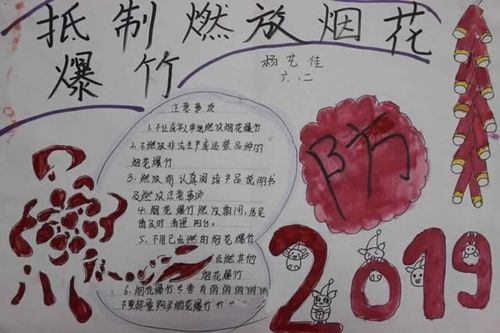 抵制燃放烟花
爆竹
杨艺佳
六.二
注意事项
1.不让成年人单独燃放烟花爆竹
2.不燃放非法生产或违禁品种的
烟花爆竹
3.燃放前认真阅读产品说明书
及燃放注意事项
4.烟花爆竹燃放期间,居民
请及时清理阳台。
5.不用已点燃的烟花爆竹
点燃其他
烟花爆竹
6.烟花爆竹
防
2019